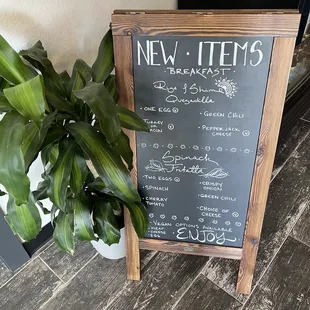 NEW • ITEMS
- BREAKFAST -
Rice & Shine
Quesadilla
• ONE EGG
• GREEN CHILI
• TURKEY
BACON
• PEPPER JACK
CHEESE
Spinach
Frittata
• TWO EGGS
• CRISPY
ONION
• SPINACH
• GREEN CHILI
• CHERRY
TOMATO
• CHOICE OF
CHEESE
VEGAN OPTIONS AVAILABLE
ENJOY